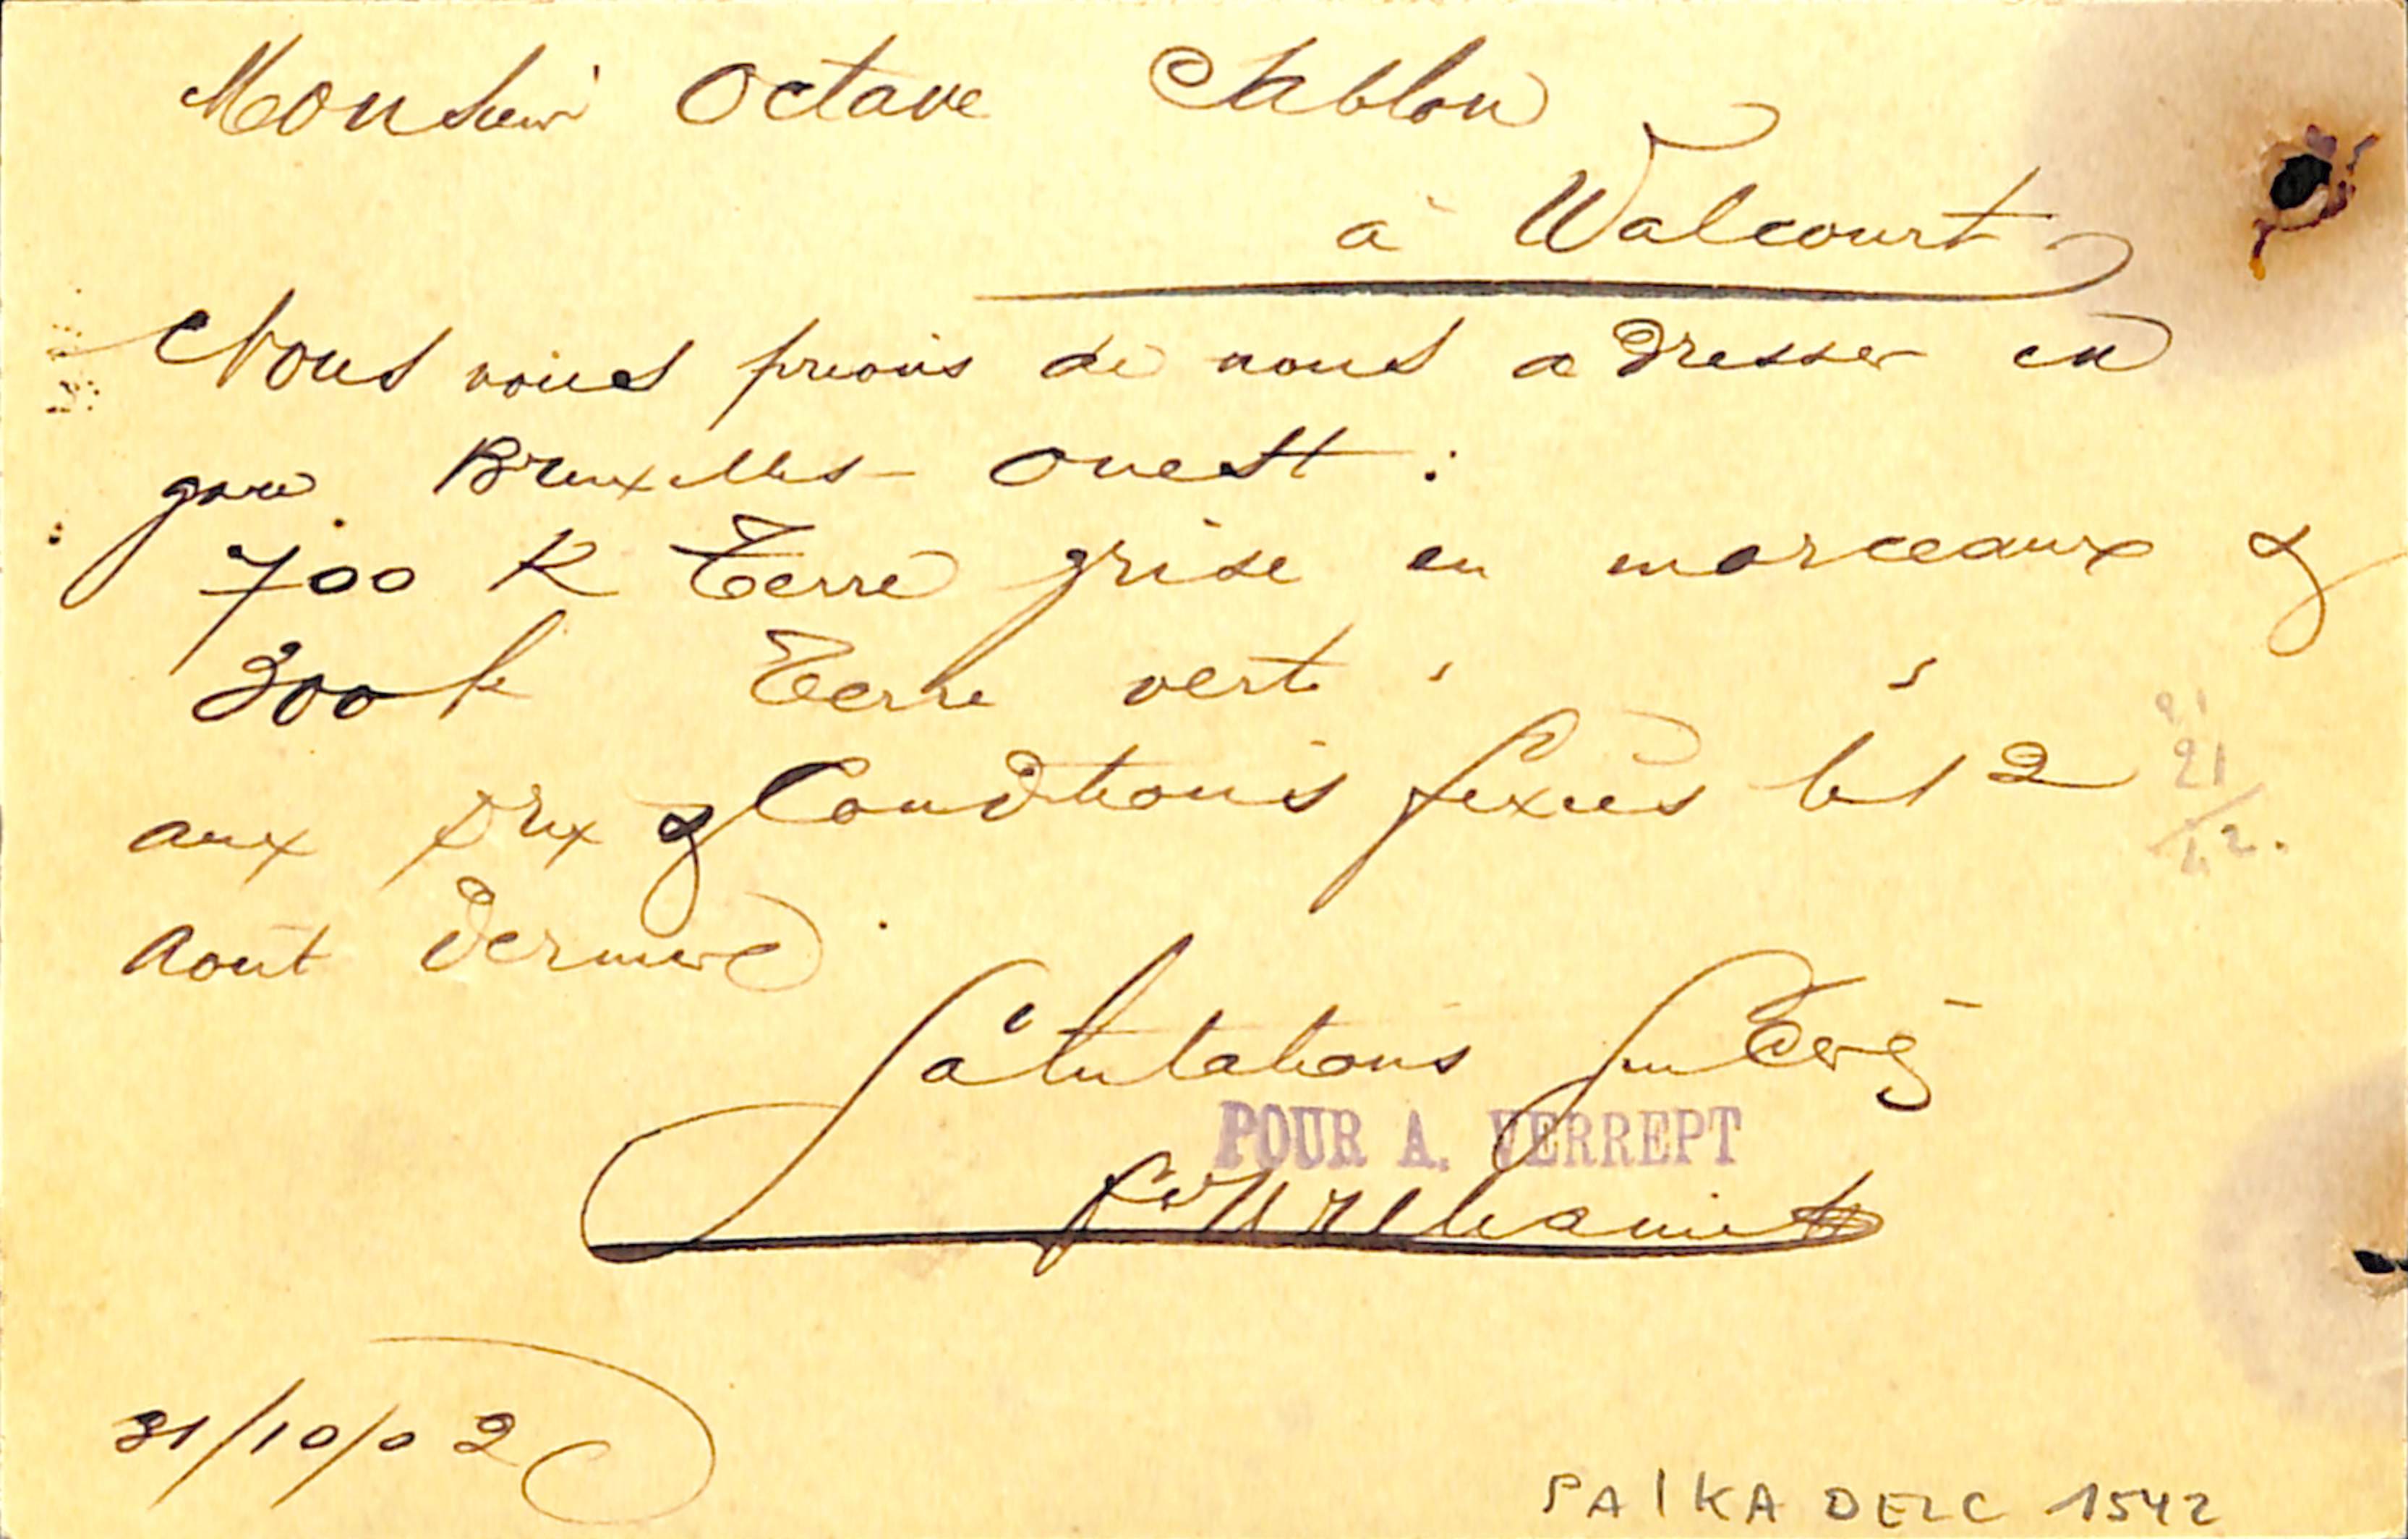 Monsieur Octave Chblon
à Walcourt
Nous vous prions de nous adresser en
gare Bruxelles-Ouest :
700 K Terre grise en morceaux &
300 k Terre vert " "
aux prix & Conditions fixées les 2
Août dernier.
Salutations
POUR A. VERREPT
31/10/02
21
PAIKA DELC 1542